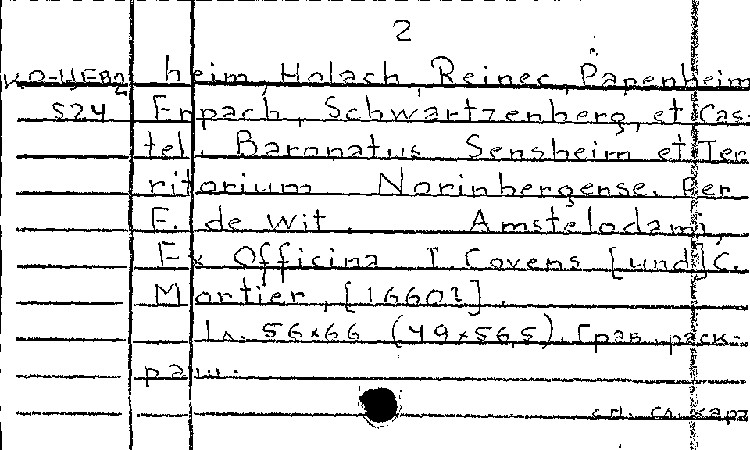 2
heim, Holach, Reinec, Papenheim
524 Erpach, Schwartzenberg, et Cas-
tel. Baronatus Sensheim et Ter
ritorium Norinbergense. Per
F. de Wit. Amstelodami,
Ex Officina I. Covens [und] C.
Mortier, [1660?].
1 л. 56×66 (49×56,5). Грав. раск-
раш.
см. сл. карт